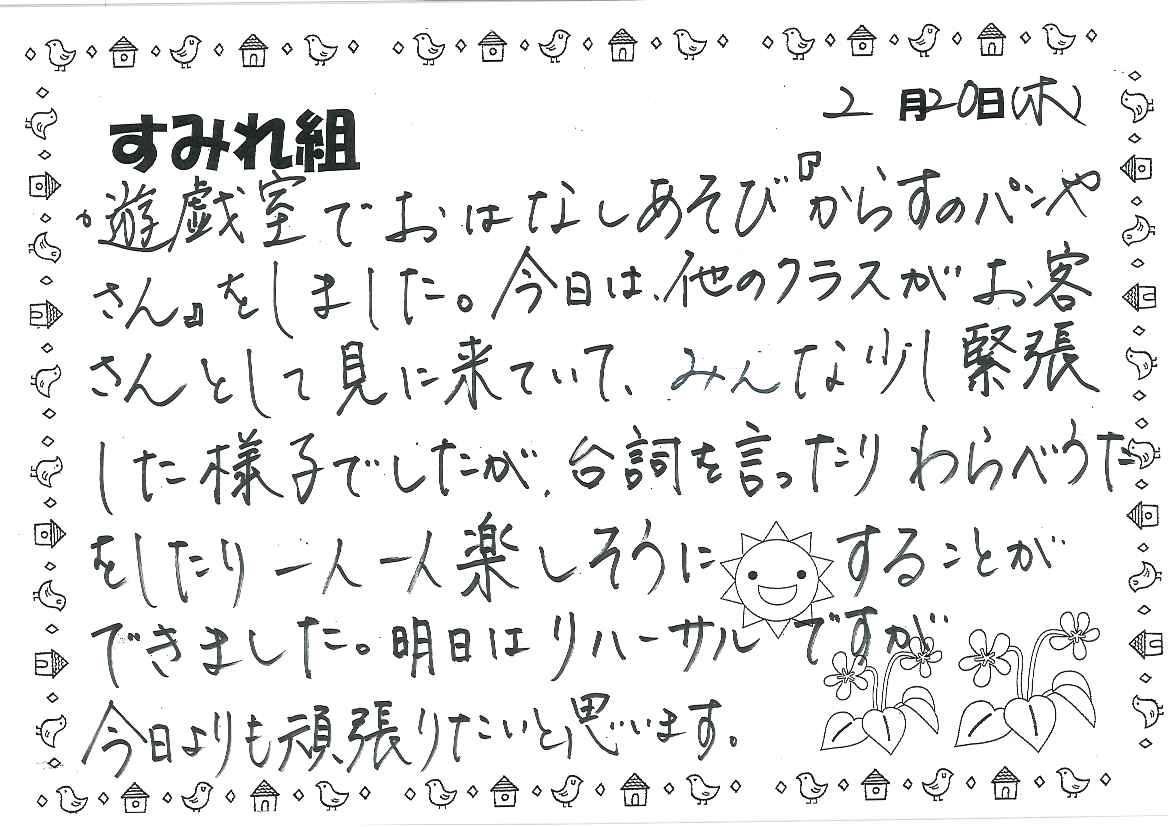 2月20日(木)
すみれ組
。遊戯室でおはなしあそび『からすのパンや
さん』をしました。今日は、他のクラスがお客
さんとして見に来ていて、みんな少し緊張
した様子でしたが、台詞を言ったりわらべうた
をしたり一人一人楽しそうにすることが
できました。明日はリハーサルですが
今日よりも頑張りたいと思います。